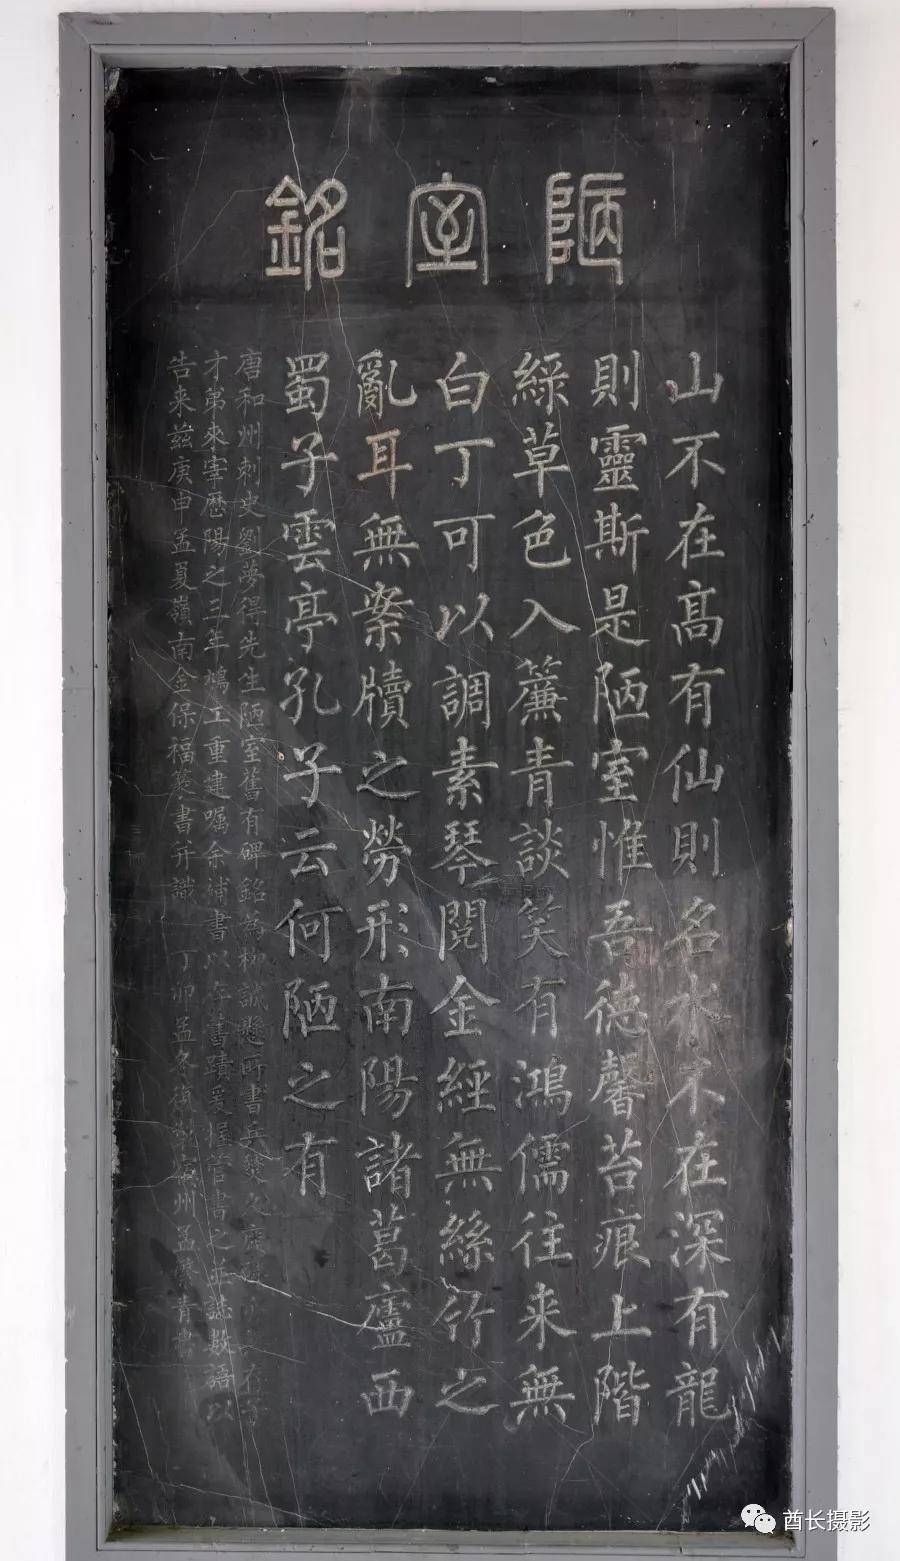 陋室銘
山不在高有仙則名水不在深有龍
則靈斯是陋室惟吾德馨苔痕上階
綠草色入簾青談笑有鴻儒往来無
白丁可以調素琴閱金經無絲竹之
亂耳無案牘之勞形南陽諸葛廬西
蜀子雲亭孔子云何陋之有
唐和州刺史劉夢得先生陋室舊有碑銘為柳誠懸所書
才弟來宰歷陽之三年鳩工重建囑余補書以存
告来茲庚申孟夏嶺南金保福葵書并識 丁卯孟冬
酋长摄影